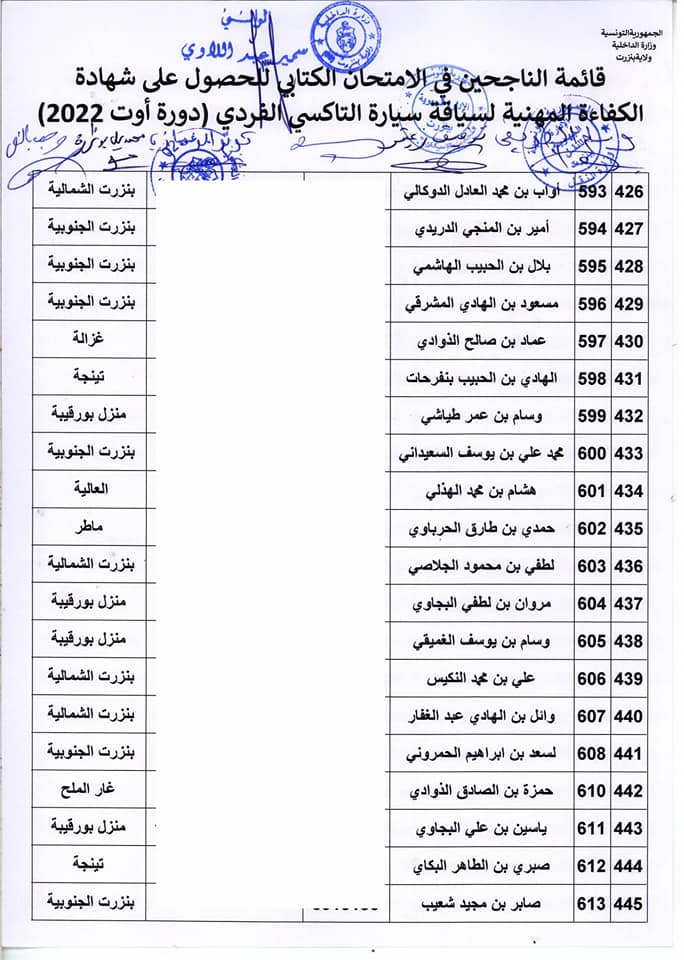 الجمهورية التونسية
وزارة الداخلية
ولاية بنزرت
الوالي
سمير عبد اللاوي
قائمة الناجحين في الامتحان الكتابي للحصول على شهادة
الكفاءة المهنية لسياقة سيارة التاكسي الفردي (دورة أوت 2022)
426 593 أواب بن محمد العادل الدوكالي بنزرت الشمالية
427 594 أمير بن المنجي الدريدي بنزرت الجنوبية
428 595 بلال بن الحبيب الهاشمي بنزرت الجنوبية
429 596 مسعود بن الهادي المشرقي بنزرت الجنوبية
430 597 عماد بن صالح الذوادي غزالة
431 598 الهادي بن الحبيب بنفرحات تينجة
432 599 وسام بن عمر طياشي منزل بورقيبة
433 600 محمد علي بن يوسف السعيداني بنزرت الجنوبية
434 601 هشام بن محمد الهذلي العالية
435 602 حمدي بن طارق الحرباوي ماطر
436 603 لطفي بن محمود الجلاصي بنزرت الشمالية
437 604 مروان بن لطفي البجاوي منزل بورقيبة
438 605 وسام بن يوسف الغميقي منزل بورقيبة
439 606 علي بن محمد النكيس بنزرت الشمالية
440 607 وائل بن الهادي عبد الغفار بنزرت الشمالية
441 608 لسعد بن ابراهيم الحمروني بنزرت الجنوبية
442 610 حمزة بن الصادق الذوادي غار الملح
443 611 ياسين بن علي البجاوي منزل بورقيبة
444 612 صبري بن الطاهر البكاي تينجة
445 613 صابر بن مجيد شعيب بنزرت الجنوبية